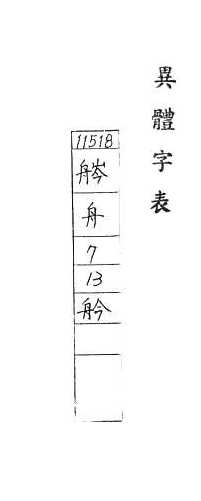 異體字表
11518
䑶
舟
7
13
舲